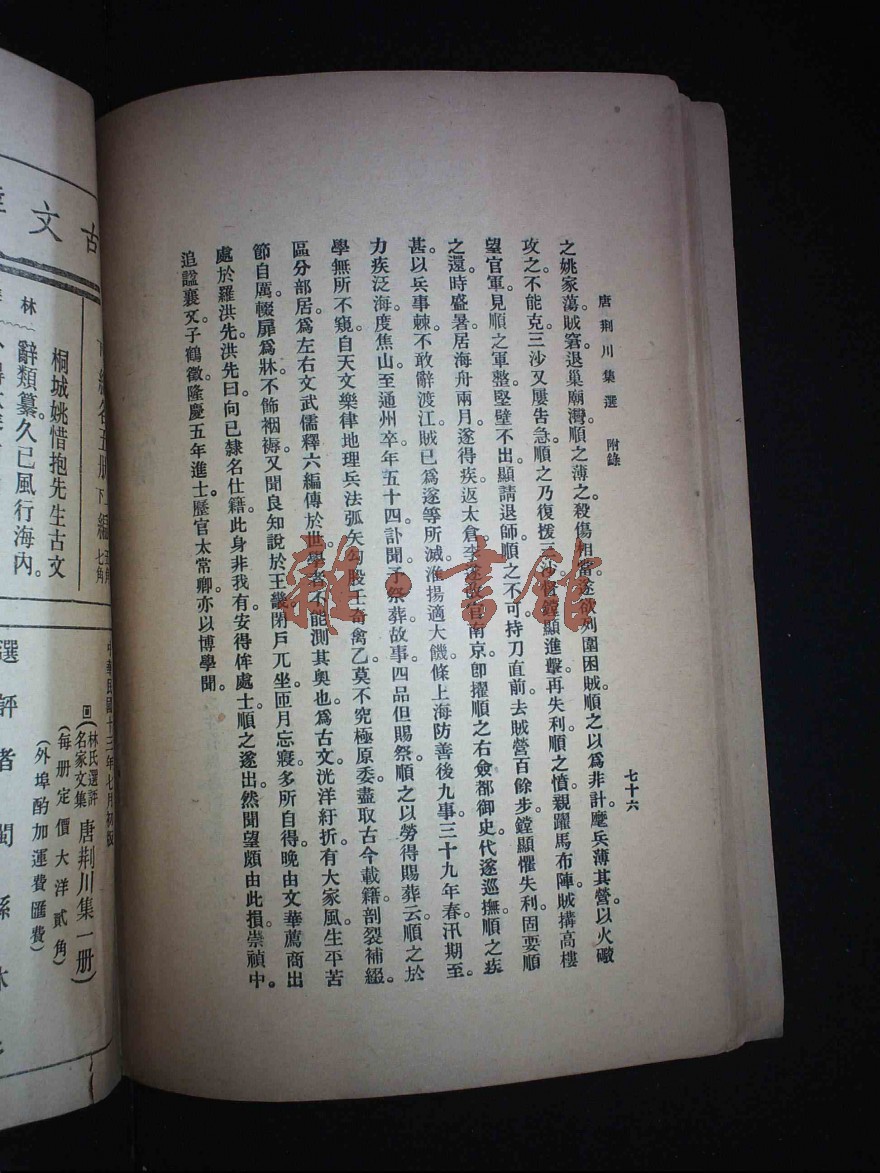 唐荆川集選 附錄
七十六
之姚家蕩。賊窘退巢廟灣。順之薄之。殺傷相當。遂欲列圍困賊。順之以爲非計。麾兵薄其營。以火礮
攻之。不能克。三沙又屢吿急。順之乃復援三沙。督鏜顯進擊。再失利。順之憤。親躍馬布陣。賊搆高樓
望官軍。見順之軍整。堅壁不出。顯請退師。順之不可。持刀直前。去賊營百餘步。鏜顯懼失利。固要順
之還。時盛暑。居海舟兩月。遂得疾。返太倉。李遂改官南京。卽擢順之右僉都御史。代遂巡撫。順之疾
甚。以兵事棘。不敢辭。渡江。賊已爲遂等所滅。淮揚適大饑。條上海防善後九事。三十九年春。汛期至。
力疾泛海。度焦山。至通州卒。年五十四。訃聞。予祭葬。故事。四品但賜祭。順之以勞得賜葬云。順之於
學無所不窺。自天文樂律地理兵法弧矢勾股壬奇禽乙。莫不究極原委。盡取古今載籍。剖裂補綴。
區分部居。爲左右文武儒釋六編傳於世。學者不能測其奧也。爲古文。洸洋紆折有大家風。生平苦
節自厲。輟扉爲牀。不飾裀褥。又聞良知說於王畿。閉戶兀坐。匝月忘寢。多所自得。晚由文華薦。商出
處於羅洪先。洪先曰。向已隸名仕籍。此身非我有。安得侔處士。順之遂出。然聞望頗由此損。崇禎中。
追諡襄文。子鶴徵。隆慶五年進士。歷官太常卿。亦以博學聞。
雜·書館
古文
林
桐城姚惜抱先生古文
辭類纂。久已風行海內。
編各五册 下編
七角
中華民國十三年七月初版
林氏選評
名家文集
唐荆川集一册
(每册定價大洋貳角)
(外埠酌加運費匯費)
選評者 閩縣 林